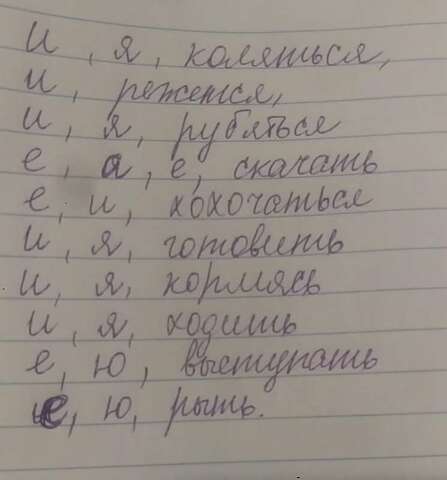 и, я, коляться,
и, режется,
и, я, рубяться
е, а, е, скачать
е, и, хохочаться
и, я, готовить
и, я, кормясь
и, я, ходить
е, ю, выступать
е, ю, рыть.